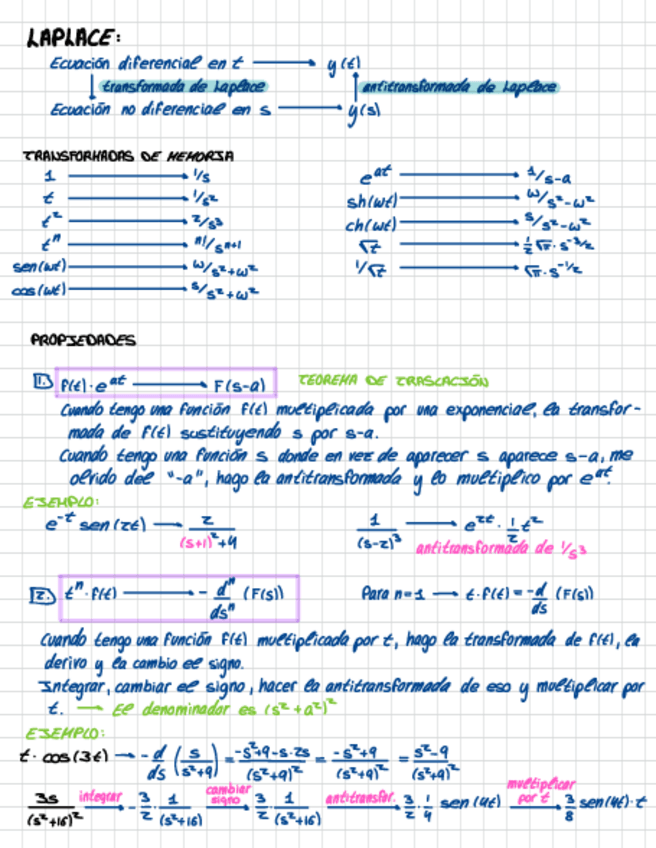 LAPLACE:
Ecuación diferencial en t → y(t)
↓ transformada de Laplace ↑ antitransformada de Laplace
Ecuación no diferencial en s → y(s)
TRANSFORMADAS DE MEMORIA
1 → 1/s
t → 1/s²
t² → 2/s³
tⁿ → n!/sⁿ⁺¹
sen(wt) → w/s²+w²
cos(wt) → s/s²+w²
e^at → 1/s-a
sh(wt) → w/s²-w²
ch(wt) → s/s²-w²
√t → 1/2 √π · s^-3/2
1/√t → √π · s^-1/2
PROPIEDADES
1. f(t)·e^at → F(s-a) TEOREMA DE TRASLACIÓN
Cuando tengo una función f(t) multiplicada por una exponencial, la transfor-
mada de f(t) sustituyendo s por s-a.
Cuando tengo una función s donde en vez de aparecer s aparece s-a, me
olvido del "-a", hago la antitransformada y lo multiplico por e^at.
EJEMPLO:
e^-t sen(2t) → 2/((s+1)²+4) 1/(s-2)³ → e^2t · 1/2 t²
antitransformada de 1/s³
2. tⁿ·f(t) → - dⁿ/dsⁿ (F(s)) Para n=1 → t·f(t) = -d/ds (F(s))
Cuando tengo una función f(t) multiplicada por t, hago la transformada de f(t), la
derivo y la cambio el signo.
Integrar, cambiar el signo, hacer la antitransformada de eso y multiplicar por
t. → El denominador es (s²+a²)²
EJEMPLO:
t · cos(3t) → - d/ds (s/(s²+9)) = (-s²+9-s·2s)/(s²+9)² = (-s²+9)/(s²+9)² = (s²-9)/(s²+9)²
3s/(s²+16)² integrar → -3/2 · 1/(s²+16) cambiar signo → 3/2 · 1/(s²+16) antitransfor. → 3/2 · 1/4 sen(4t) multiplicar por t → 3/8 sen(4t)·t